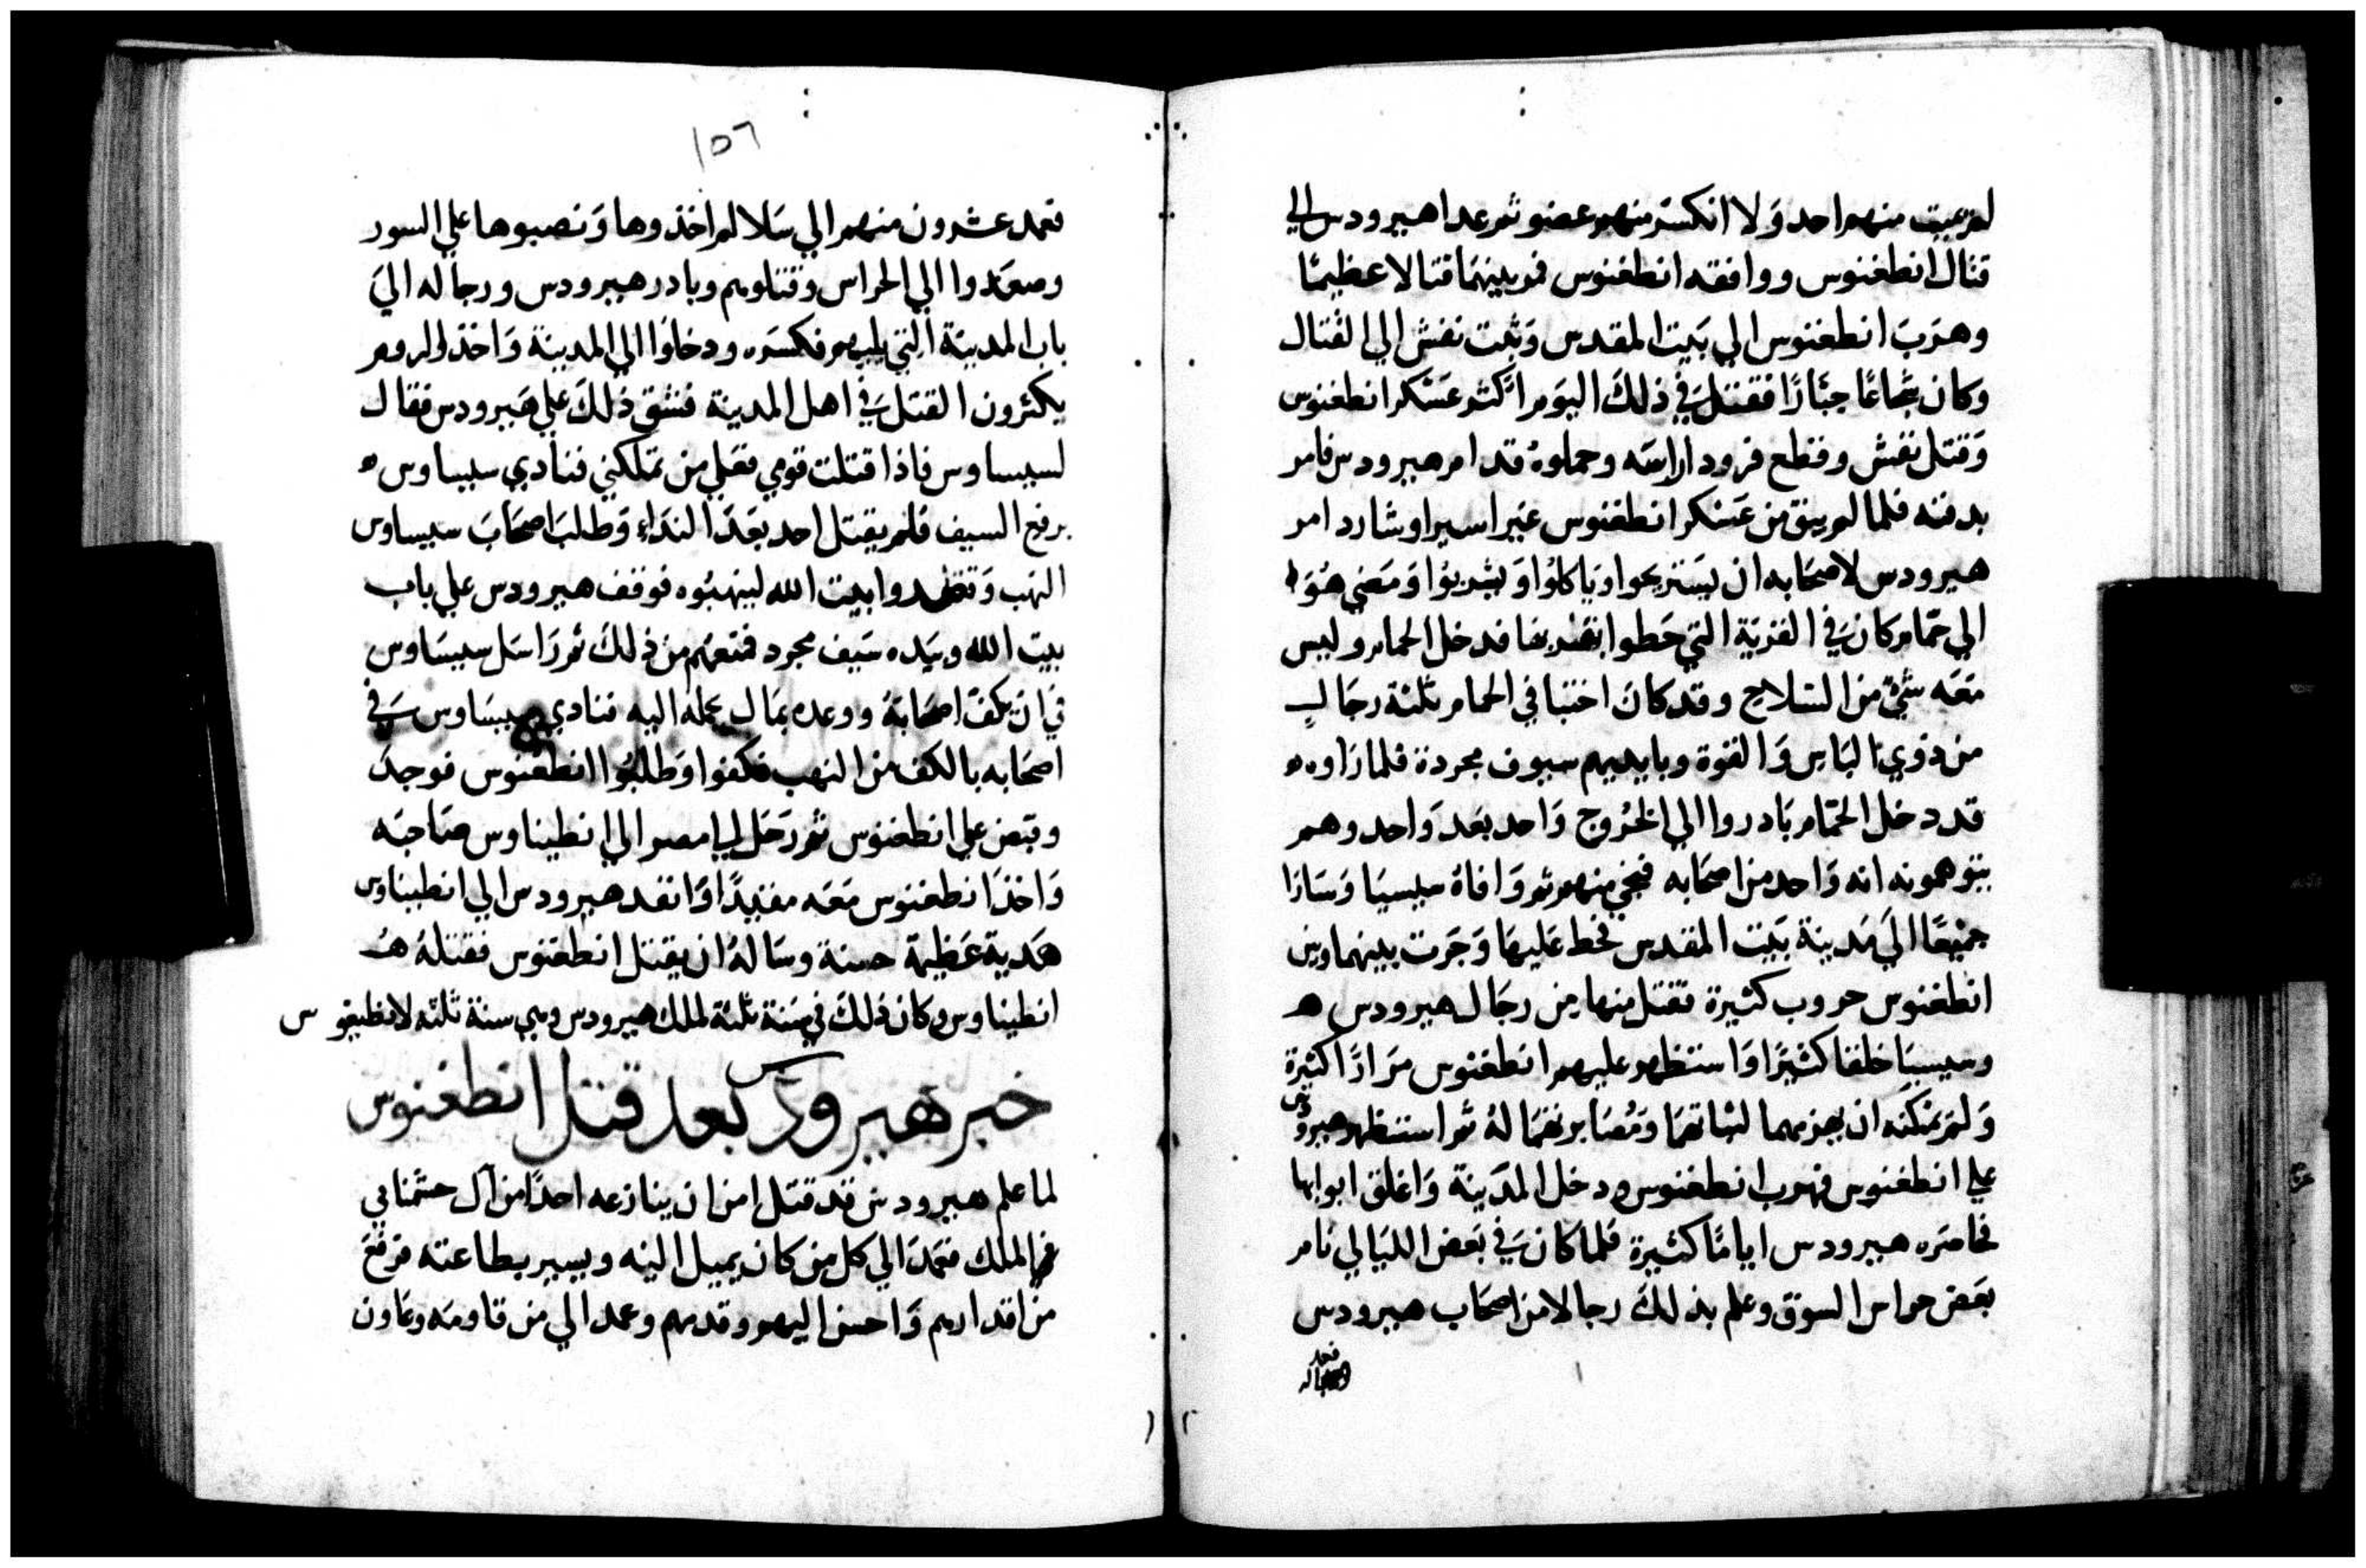 لم يمت منهم احد وَلا انكسر منهم عضو ثم عدا هيرودس الي
قتال انطغنوس ووافقه انطغنوس فوبينهمَا قتالا عظيمًا
وهرَبَ انطغنوس الي بَيت المقدس وَثبت نفش الي القتال
وكان شجَاعًا جبَارًا فقتل في ذلكَ اليَوم اكثر عسَكر انطغنوس
وَقتل نفش وقطع فرودا راسَه وحملوهُ قدام هيرودس فامر
بدفنه فلما لم يبق من عَسَكر انطغنوس غير اسير اوشارد امر
هيرودس لاصحَابه ان يستريحوا ويَاكلوُا وَيشربوُا وَمَضي هُوَ
الي حمّام كان في القريَة التي حَطوا بقربها فدخل الحمام وليس
مَعَه شيٌ من السَلاح وقد كانَ اختبا في الحمام ثلثة رجَال
من ذوي البَاس وَالقوة وبايديهم سيوف مجردة فلما رَاوه
قد دخل الحمَام بَادروا الي الخرُوج وَاحد بَعد وَاحد وهم
يتوهمونه انه وَاحد من اصحَابه فنجي منهم ثم وَافاهُ سيسيَا وَسَارَا
جميعًا الي مَدينة بَيت المقدس فحط عَليهَا وَجَرت بينهما وبين
انطغنوس حروب كثيرة فقتل منها من رجَال هيرودس
وسيسيَا خلقا كثيرًا وَاستظهر عليهم انطغنوس مرَارًا كثيرة
وَلم يمكنه ان يهزمهما لثباتهمَا ومُصَابرتهمَا لهُ ثم استظهر هيرودس
علي انطغنوس فهرب انطغنوس ودخل المدَينة وَاغلق ابوابها
فحاصرَه هيرودس ايامًا كثيرة فلما كان في بَعض الليَالي نام
بعَض حراس السوق وعلم بذلكَ رجالا من اصحَاب هيرودس
فعمد
١٥٦
فعمد عشرون منهم الي سَلالم اخذوها وَنصبوها علي السور
وصعَدوا الي الحراس وقتلوهم وبادر هيرودس ورجاله الي
باب المدينة التي يليهم فكسَره ودخلوا الي المدينة وَاخذ الروم
يكثرون القتل في اهل المدينة فشق ذلكَ علي هَيرودس فقال
لسيساوس فاذا قتلت قومي فعلي من تملكني فنادي سيساوس
برفع السيف فلم يقتل احد بعَدَ النداء وَطلبَ اصحَابَ سيساوس
النهب وَقصدوا بيت الله لينهبُوه فوقف هيرودس علي باب
بيت الله وبيَده سَيف مجرد فمنعهُم من ذلكَ ثم رَاسَل سيسَاوس
في ان يكفّ اصحَابهُ ووعده بمَال يحمله اليه فنادي سيسَاوس في
اصحَابه بالكف من النهب فكفوا وَطلبُوا انطغنوس فوجدَ
وقبض علي انطغنوس ثم رَحَل الي مصر الي انطيناوس صَاحبَه
وَاخذَ انطغنوس مَعَه مقيدًا وَانفد هيرودس الي انطيناوس
هَدية عَظيمَة حسنة وسَالهُ ان يقتل انطغنوس فقتلهُ
انطيناوس وكان ذلكَ في سَنة ثلثة لملك هيرودس وهي سنة ثلثه لانطيغوس
خبر هيرودس بعد قتل انطغنوس
لما علم هيرودس قد قتل امن ان ينازعه احدًا من آل حشمناي
في الملك فعَمدَ الي كل من كان يميل اليه ويسير بطاعته فرفعَ
من اقدارهم وَاحسن اليهم وقدمهم وعمد الي من قاومَه وعَاون